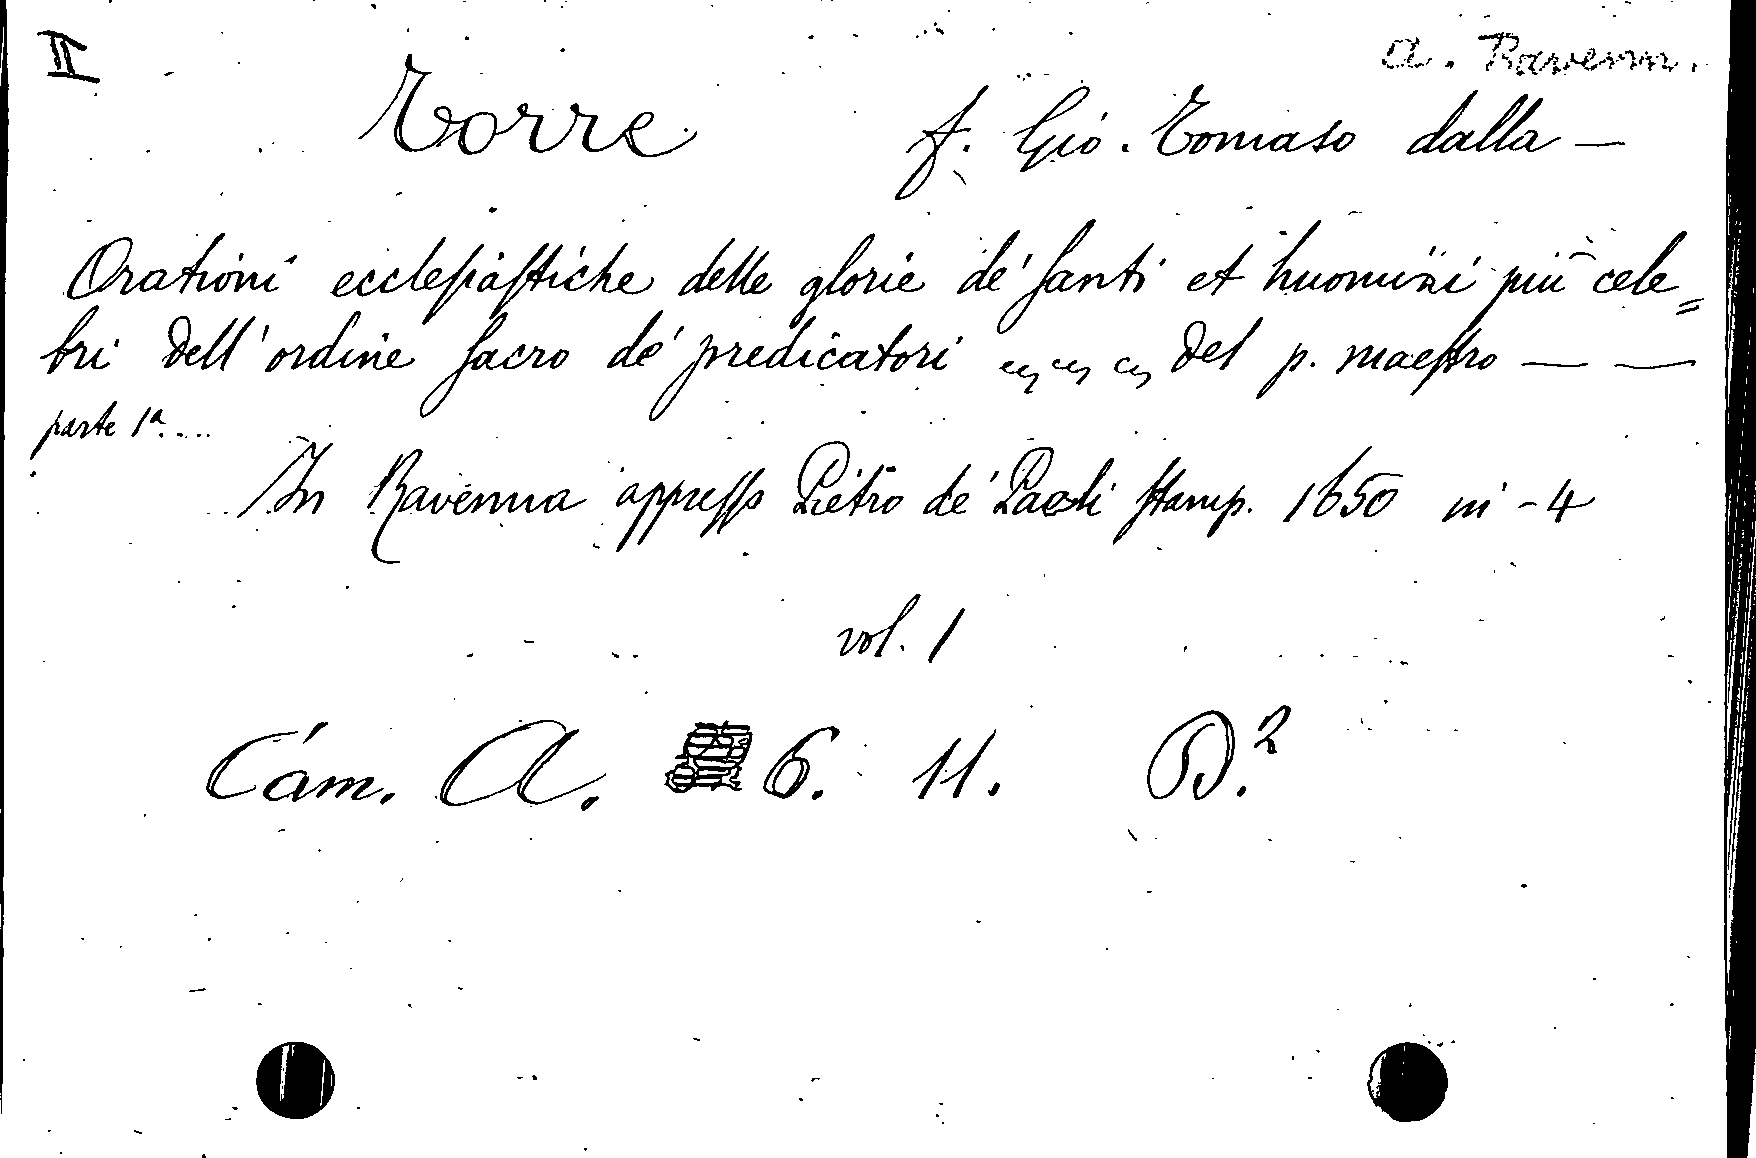 II
a. Ravenn.
Torre f. Gio. Tomaso dalla —
Orationi ecclesiastiche delle glorie de' santi et huomini più cele=
bri dell'ordine sacro de' predicatori ... del p. maestro — —
parte 1ª....
In Ravenna appresso Pietro de' Paoli stamp. 1650 in-4
vol. 1
Cam. A. 6. 11. B.²